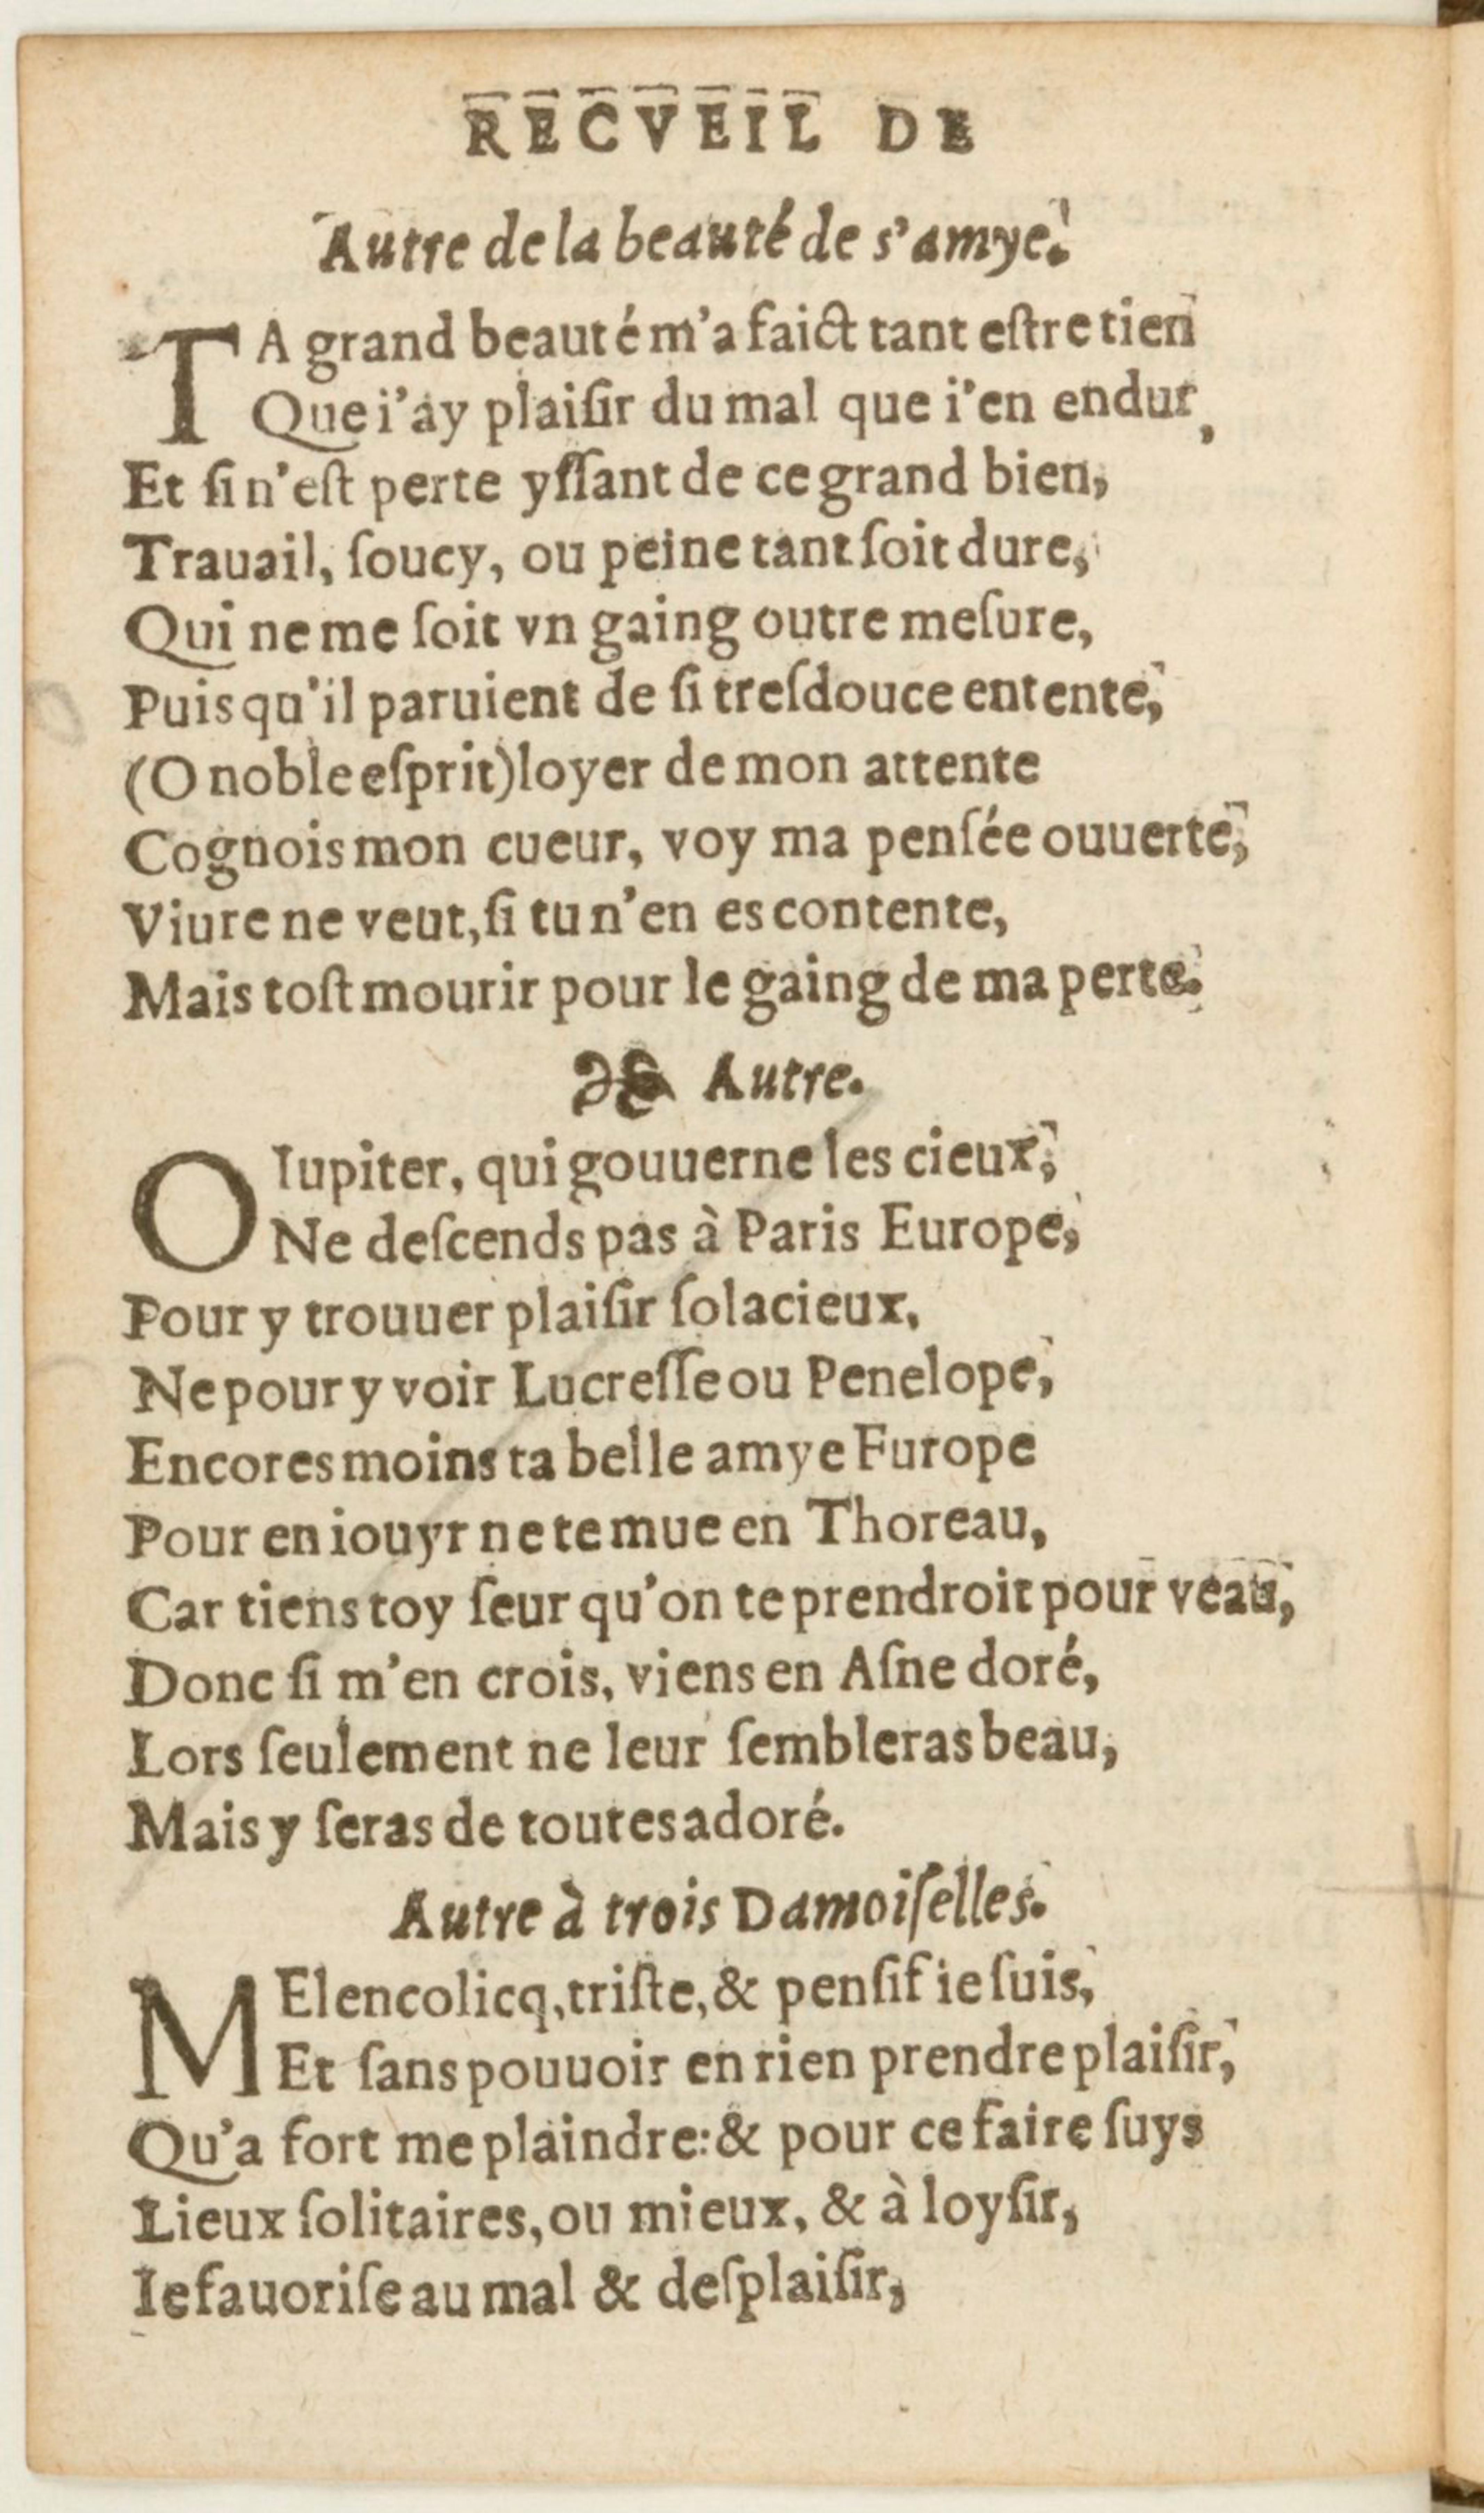 RECVEIL DE
Autre de la beauté de s'amye.
TA grand beauté m'a faict tant eſtre tien
Que i'ay plaiſir du mal que i'en endur,
Et ſi n'eſt perte yſſant de ce grand bien,
Trauail, ſoucy, ou peine tant ſoit dure,
Qui ne me ſoit vn gaing outre meſure,
Puis qu'il paruient de ſi treſdouce entente,
(O noble eſprit) loyer de mon attente
Cognois mon cueur, voy ma penſée ouuerte,
Viure ne veut, ſi tu n'en es contente,
Mais toſt mourir pour le gaing de ma perte.
Autre.
O Iupiter, qui gouuerne les cieux,
Ne deſcends pas à Paris Europe,
Pour y trouuer plaiſir ſolacieux,
Ne pour y voir Lucreſſe ou Penelope,
Encores moins ta belle amye Furope
Pour en iouyr ne te mue en Thoreau,
Car tiens toy ſeur qu'on te prendroit pour veau,
Donc ſi m'en crois, viens en Aſne doré,
Lors ſeulement ne leur ſembleras beau,
Mais y ſeras de toutes adoré.
Autre à trois Damoiſelles.
MElencolicq, triſte, & penſif ie ſuis,
Et ſans pouuoir en rien prendre plaiſir,
Qu'a fort me plaindre: & pour ce faire ſuys
Lieux ſolitaires, ou mieux, & à loyſir,
Ie fauoriſe au mal & deſplaiſir,